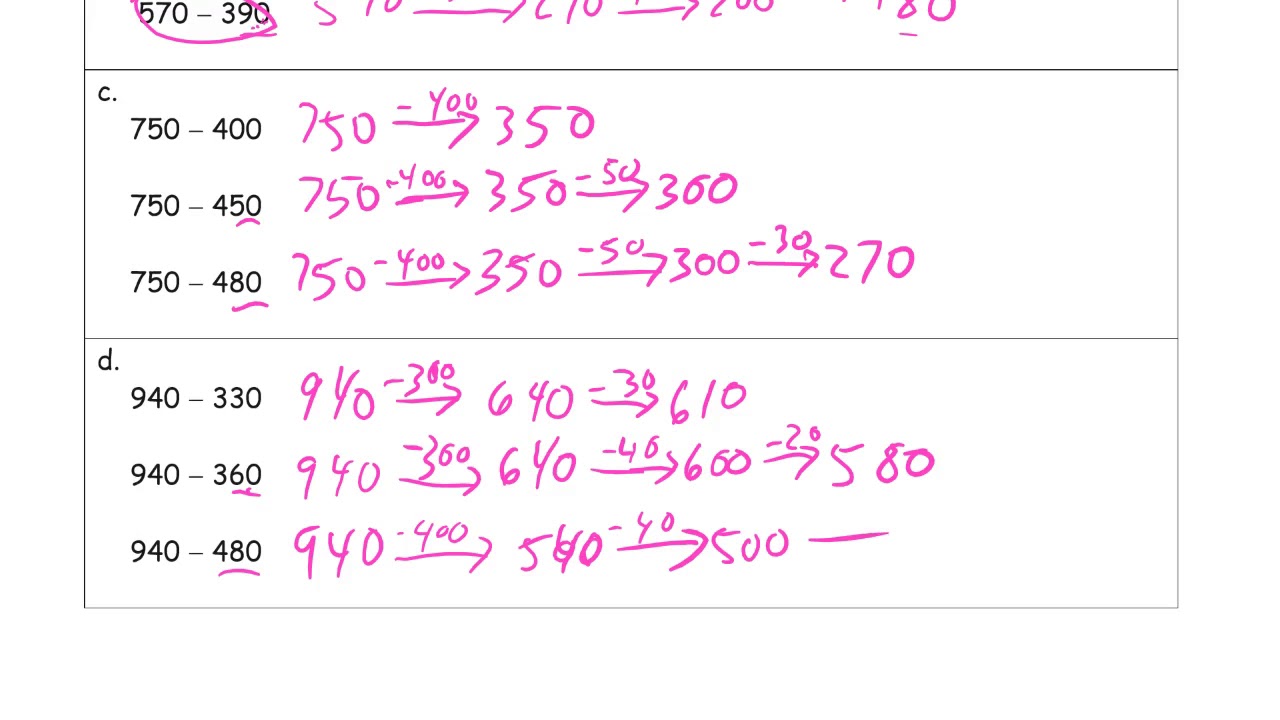 570 – 390 5 10 → 270 → 200 180
c.
750 – 400 750 -400→ 350
750 – 450 750 -400→ 350 -50→ 300
750 – 480 750 -400→ 350 -50→ 300 -30→ 270
d.
940 – 330 940 -300→ 640 -30→ 610
940 – 360 940 -300→ 640 -40→ 600 -20→ 580
940 – 480 940 -400→ 540 -40→ 500 —